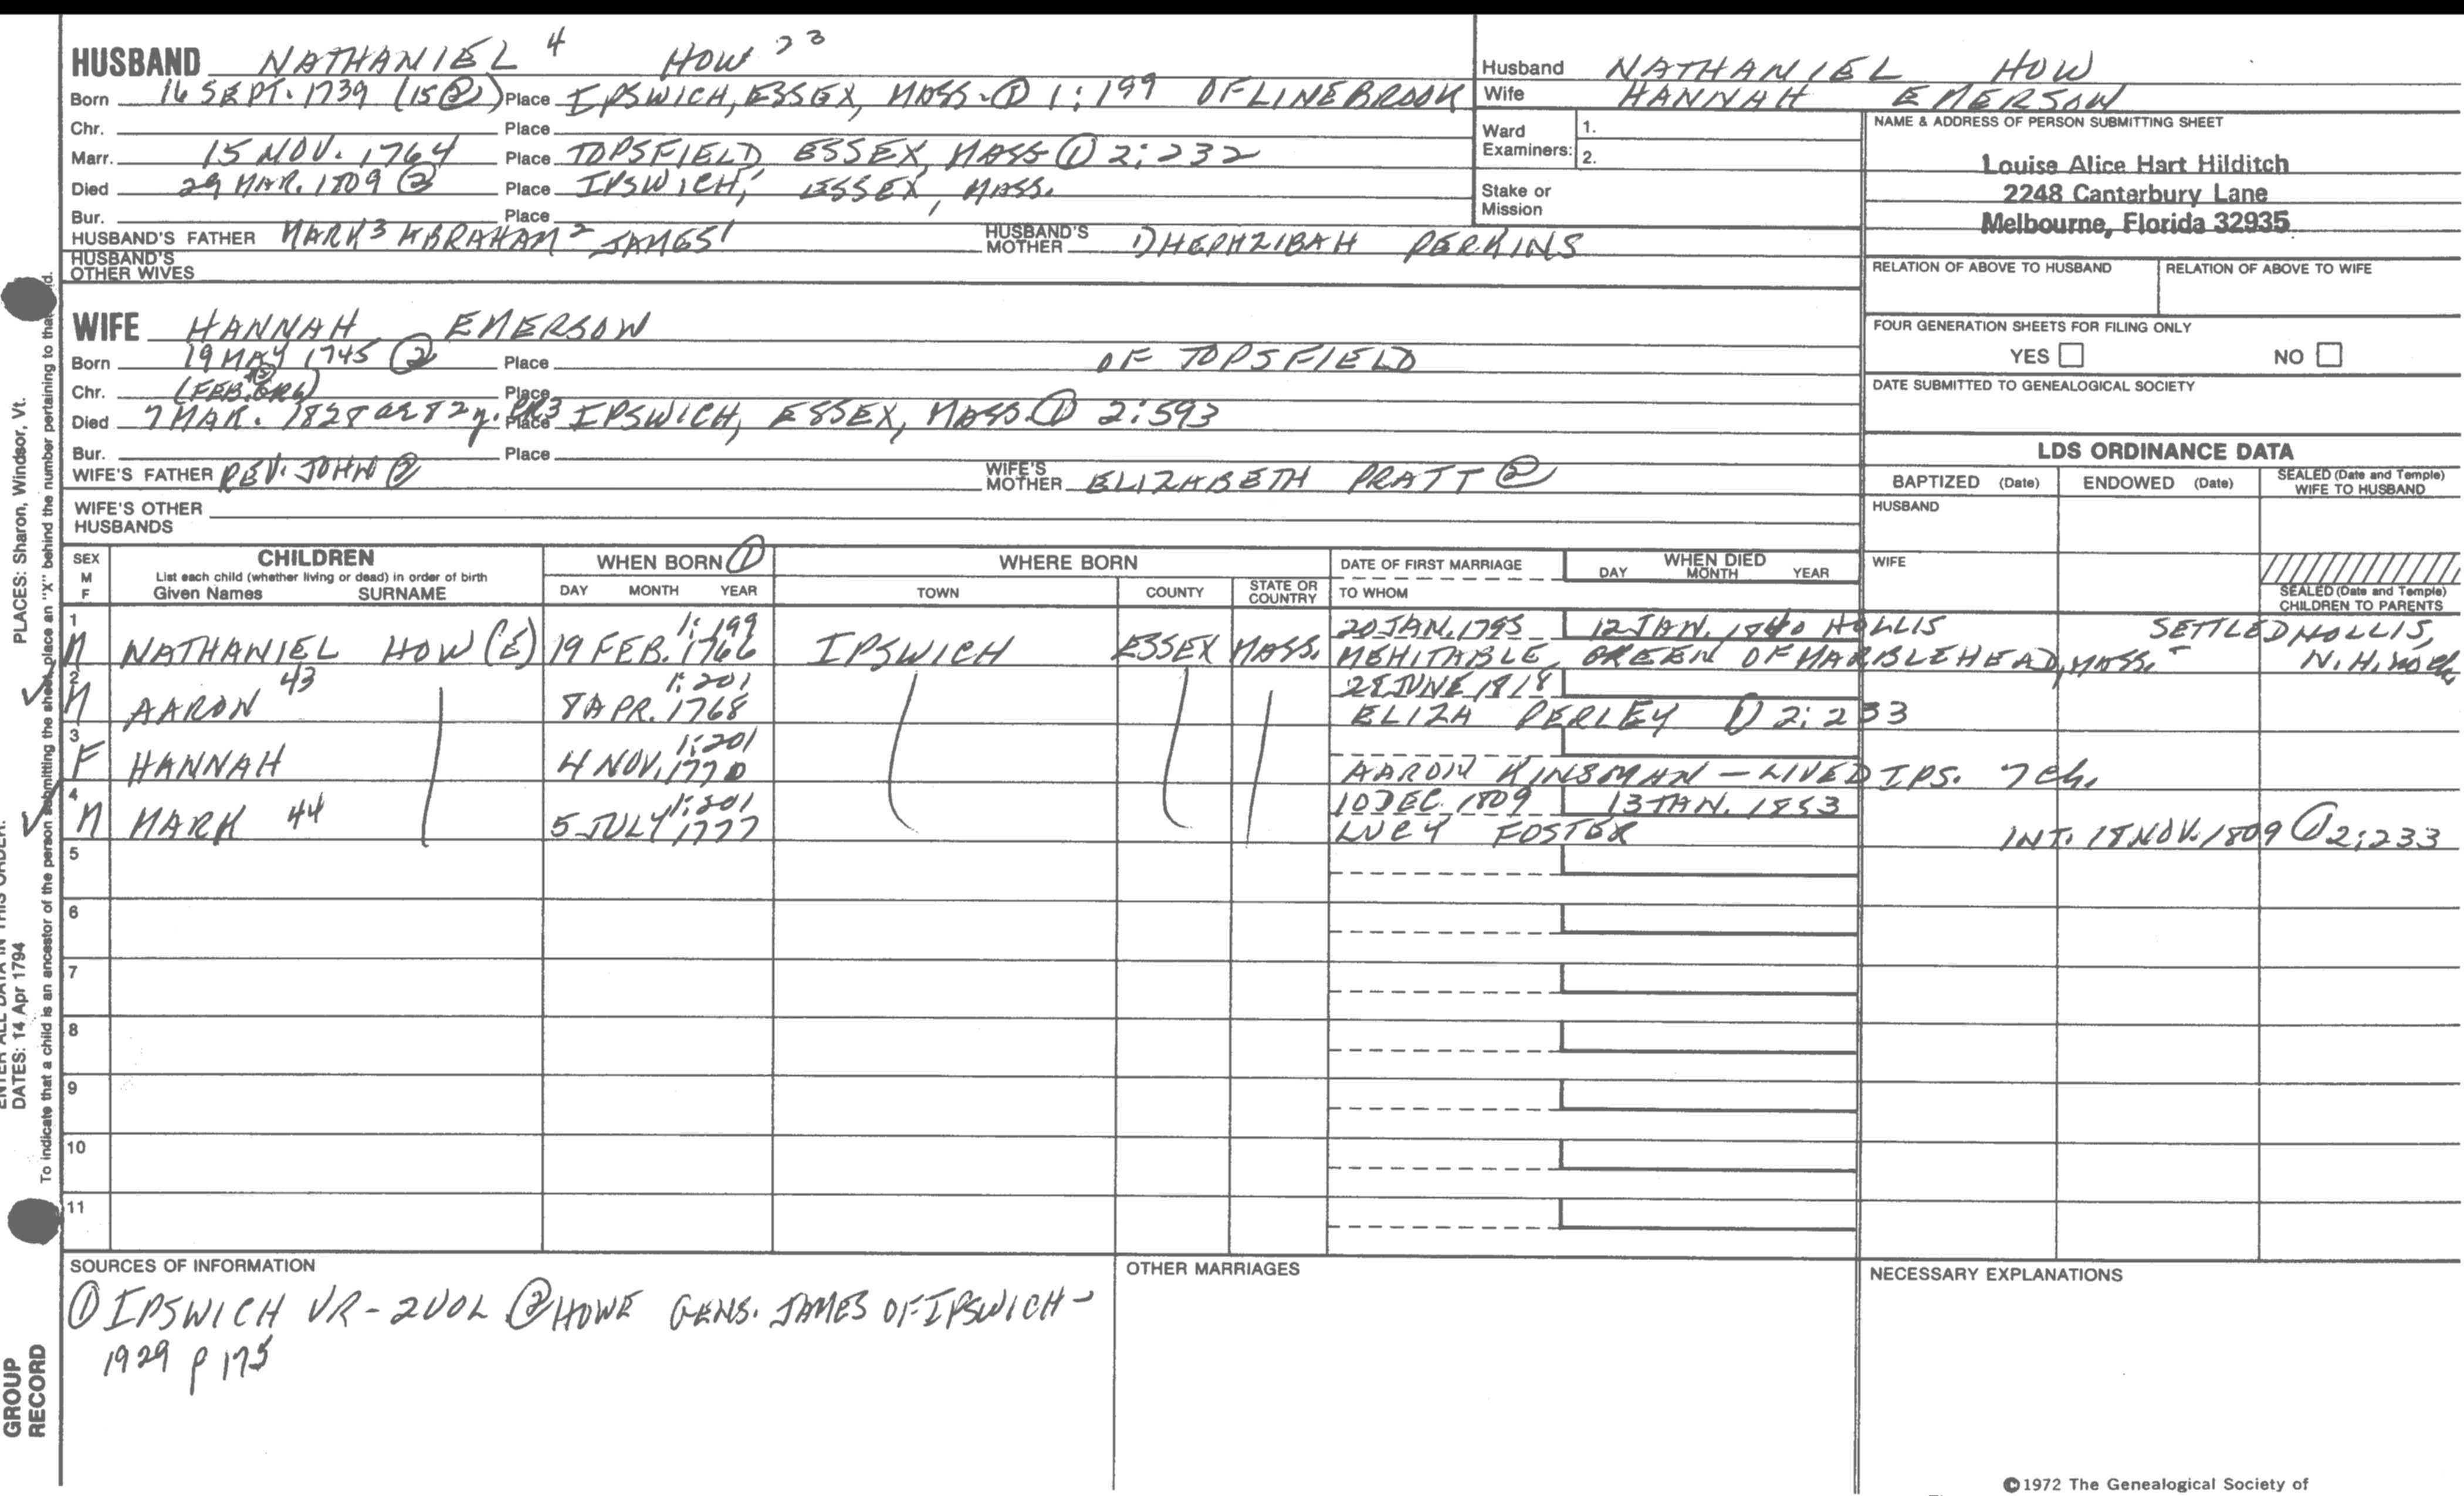 HUSBAND NATHANIEL 4 HOW 23
Born 16 SEPT. 1739 (15②) Place IPSWICH, ESSEX, MASS. ① 1:199 OF LINEBROOK
Chr. Place
Marr. 15 NOV. 1764 Place TOPSFIELD, ESSEX, MASS ① 2:232
Died 29 MAR. 1809 ② Place IPSWICH, ESSEX, MASS.
Bur. Place
HUSBAND'S FATHER MARK3 ABRAHAM2 JAMES1 HUSBAND'S MOTHER 1) HEPHZIBAH PERKINS
HUSBAND'S OTHER WIVES
Husband NATHANIEL HOW
Wife HANNAH EMERSON
Ward Examiners: 1.
2.
Stake or Mission
NAME & ADDRESS OF PERSON SUBMITTING SHEET
Louise Alice Hart Hilditch
2248 Canterbury Lane
Melbourne, Florida 32935
RELATION OF ABOVE TO HUSBAND RELATION OF ABOVE TO WIFE
FOUR GENERATION SHEETS FOR FILING ONLY
YES NO
DATE SUBMITTED TO GENEALOGICAL SOCIETY
WIFE HANNAH EMERSON
Born 19 MAY 1745 ② Place OF TOPSFIELD
Chr. (FEB. Place
Died 7 MAR. 1828 ae 82 y. CR3 Place IPSWICH, ESSEX, MASS. ① 2:593
Bur. Place
WIFE'S FATHER REV. JOHN ② WIFE'S MOTHER ELIZABETH PRATT ②
WIFE'S OTHER HUSBANDS
LDS ORDINANCE DATA
BAPTIZED (Date) ENDOWED (Date) SEALED (Date and Temple) WIFE TO HUSBAND
HUSBAND
WIFE
SEALED (Date and Temple) CHILDREN TO PARENTS
SEX M F
CHILDREN
List each child (whether living or dead) in order of birth
Given Names SURNAME
WHEN BORN ①
DAY MONTH YEAR
WHERE BORN
TOWN COUNTY STATE OR COUNTRY
DATE OF FIRST MARRIAGE
TO WHOM
WHEN DIED
DAY MONTH YEAR
1 1:199 20 JAN. 1795 12 JAN. 1840 HOLLIS SETTLED HOLLIS,
M NATHANIEL HOW (E) 19 FEB. 1766 IPSWICH ESSEX MASS. MEHITABLE GREEN OF MARBLEHEAD, MASS. N.H.
2 43 1:201 28 JUNE 1818
M AARON 8 APR. 1768 ELIZA PERLEY ① 2:233
3 1:201
F HANNAH 4 NOV. 1770 AARON KINSMAN - LIVED IPS. 7 ch.
4 1:201 10 DEC. 1809 13 JAN. 1853
M MARK 44 5 JULY 1777 LUCY FOSTER INT. 18 NOV. 1809 ① 2:233
5
6
7
8
9
10
11
SOURCES OF INFORMATION
① IPSWICH VR - 2 VOL ② HOWE GENS. JAMES OF IPSWICH -
1929 p 175
OTHER MARRIAGES
NECESSARY EXPLANATIONS
©1972 The Genealogical Society of
ENTER ALL DATA IN THIS ORDER:
DATES: 14 Apr 1794
PLACES: Sharon, Windsor, Vt.
To indicate that a child is an ancestor of the person submitting the sheet, place an "X" behind the number pertaining to that
GROUP
RECORD